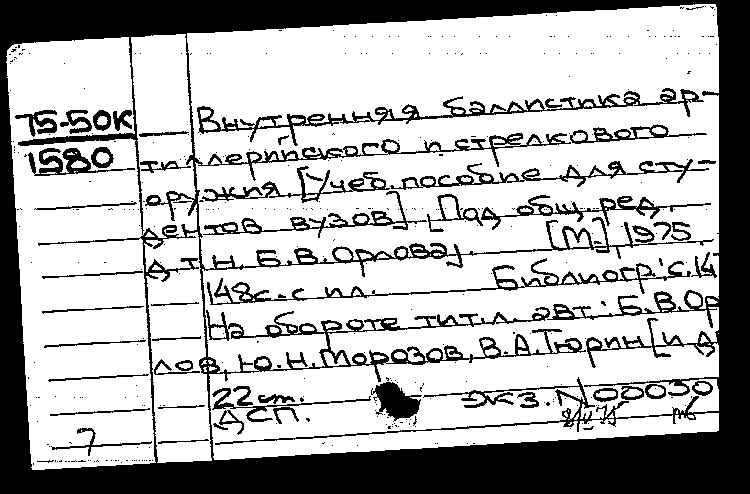 75-50К
1580
Внутренняя баллистика ар-
тиллерийского и стрелкового
оружия. [Учеб. пособие для сту-
дентов вузов] [Под общ. ред.
д.т.н. Б.В. Орлова]. [М.], 1975.
148с. с ил. Библиогр.: с. 147
На обороте тит. л. авт.: Б.В. Ор
лов, Ю.Н. Морозов, В.А. Тюрин [и д
22 cm.
ДСП. экз. N 00030
7